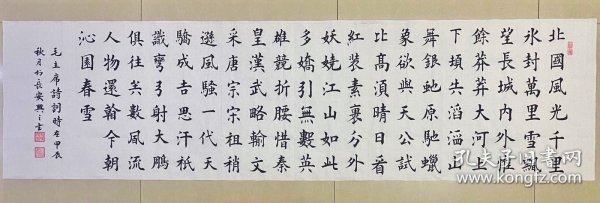 北國風光千里
冰封萬里雪飄
望長城內外惟
餘莽莽大河上
下頓失滔滔山
舞銀蛇原馳蠟
象欲與天公試
比高須晴日看
紅裝素裹分外
妖嬈江山如此
多嬌引無數英
雄競折腰惜秦
皇漢武略輸文
采唐宗宋祖稍
遜風騷一代天
驕成吉思汗祇
識彎弓射大鵰
俱往矣數風流
人物還看今朝
沁園春雪
毛主席詩詞時在甲辰
秋月於長安興之書
孔夫子旧书网
www.kongfz.com